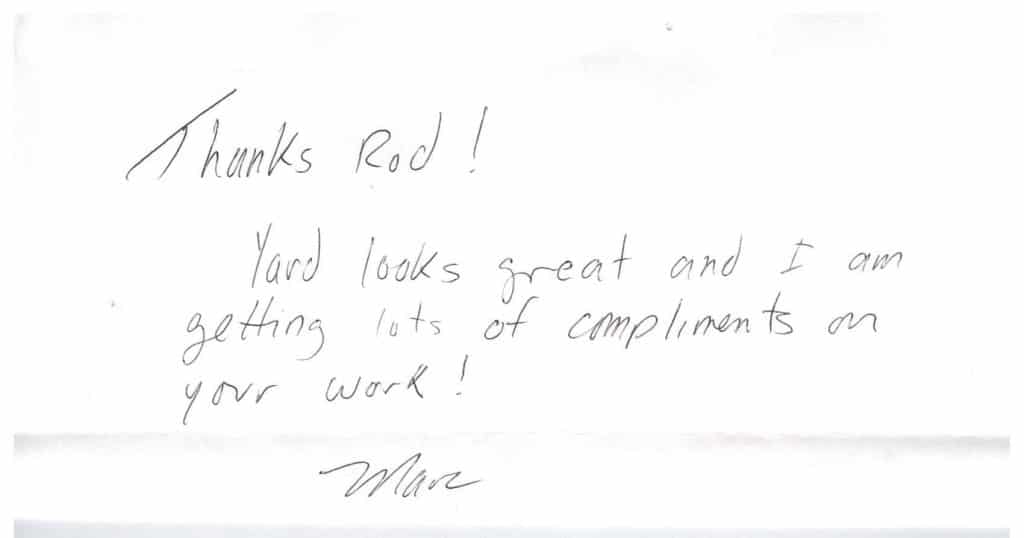 Thanks Rod!
Yard looks great and I am
getting lots of compliments on
your work!
Marc